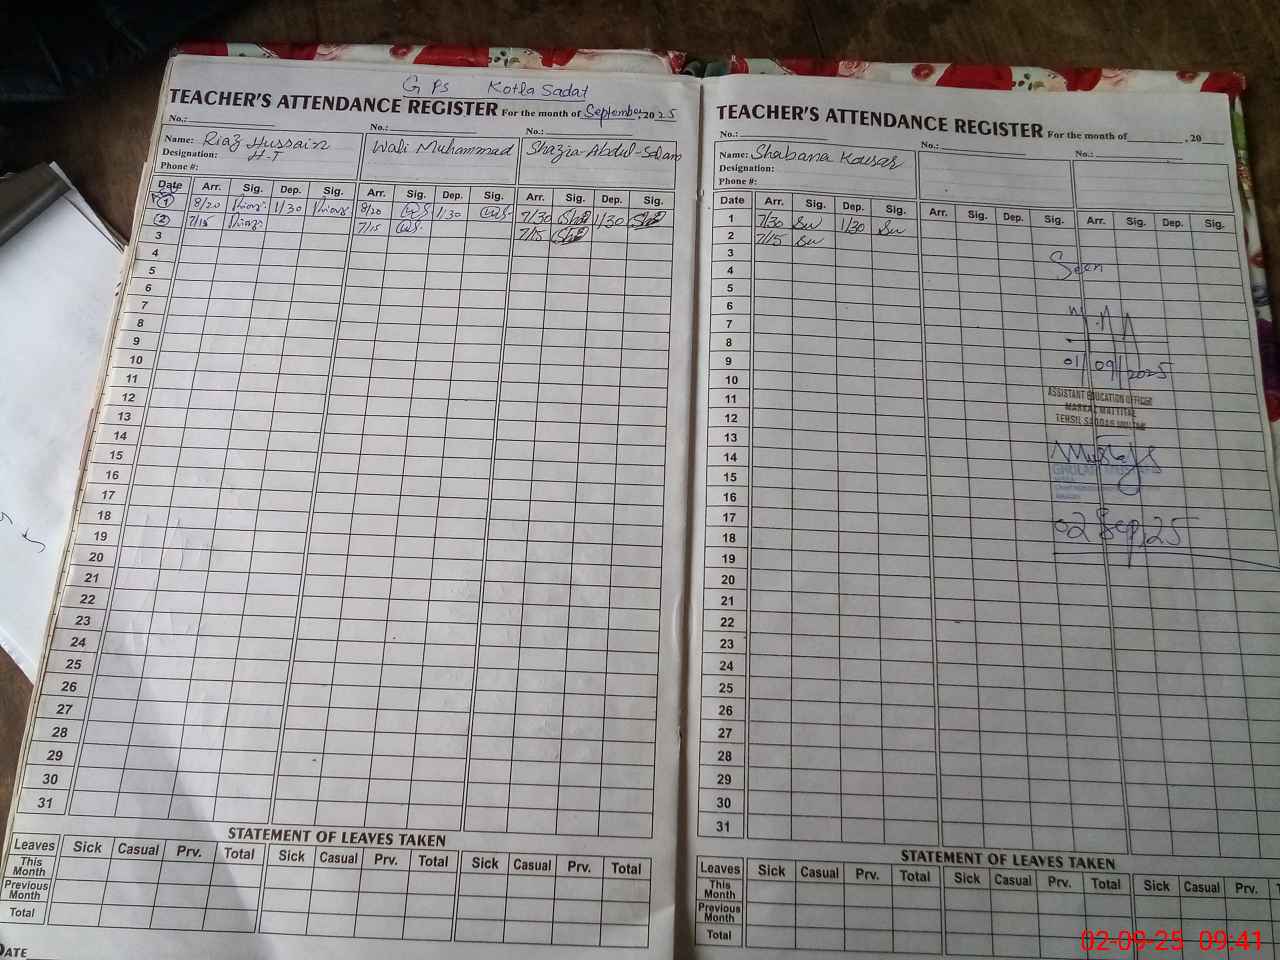 G PS Kotla Sadat
TEACHER'S ATTENDANCE REGISTER For the month of September, 2025
No.: No.: No.:
Name: Riaz Hussain Wali Muhammad Shazia Abdul-Salam
Designation: H-T
Phone #:
Date Arr. Sig. Dep. Sig. Arr. Sig. Dep. Sig. Arr. Sig. Dep. Sig.
1 8/20 Riaz 1/30 Riaz 8/20 1/30 7/30 Sha 1/30 Sha
2 7/15 Riaz 7/15 7/15 Sha
3
4
5
6
7
8
9
10
11
12
13
14
15
16
17
18
19
20
21
22
23
24
25
26
27
28
29
30
31
STATEMENT OF LEAVES TAKEN
Leaves Sick Casual Prv. Total Sick Casual Prv. Total Sick Casual Prv. Total
This Month
Previous Month
Total
DATE
TEACHER'S ATTENDANCE REGISTER For the month of , 20
No.: No.: No.:
Name: Shabana Kousar
Designation:
Phone #:
Date Arr. Sig. Dep. Sig. Arr. Sig. Dep. Sig. Arr. Sig. Dep. Sig.
1 7/30 1/30
2 7/15
3
4
5
6
7
8
9
10
11
12
13
14
15
16
17
18
19
20
21
22
23
24
25
26
27
28
29
30
31
Seen
01/09/2025
ASSISTANT EDUCATION OFFICER
MARKAZ MATTITAL
TEHSIL SADDAR MULTAN
GHULAM
02 Sep, 25
STATEMENT OF LEAVES TAKEN
Leaves Sick Casual Prv. Total Sick Casual Prv. Total Sick Casual Prv.
This Month
Previous Month
Total
02-09-25 09:41